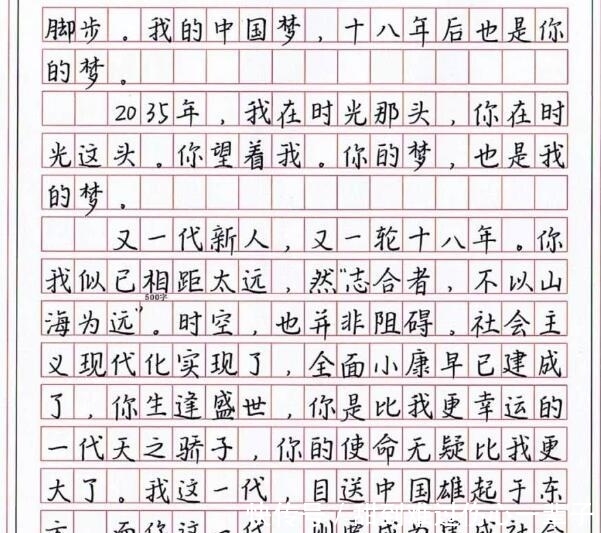 脚步。我的中国梦，十八年后也是你
的梦。
2035年，我在时光那头，你在时
光这头。你望着我。你的梦，也是我
的梦。
又一代新人，又一轮十八年。你
我似已相距太远，然“志合者，不以山
500字
海为远”。时空，也并非阻碍。社会主
义现代化实现了，全面小康早已建成
了，你生逢盛世，你是比我更幸运的
一代天之骄子，你的使命无疑比我更
大了。我这一代，目送中国雄起于东
方，而你这一代，则要成为建成社会